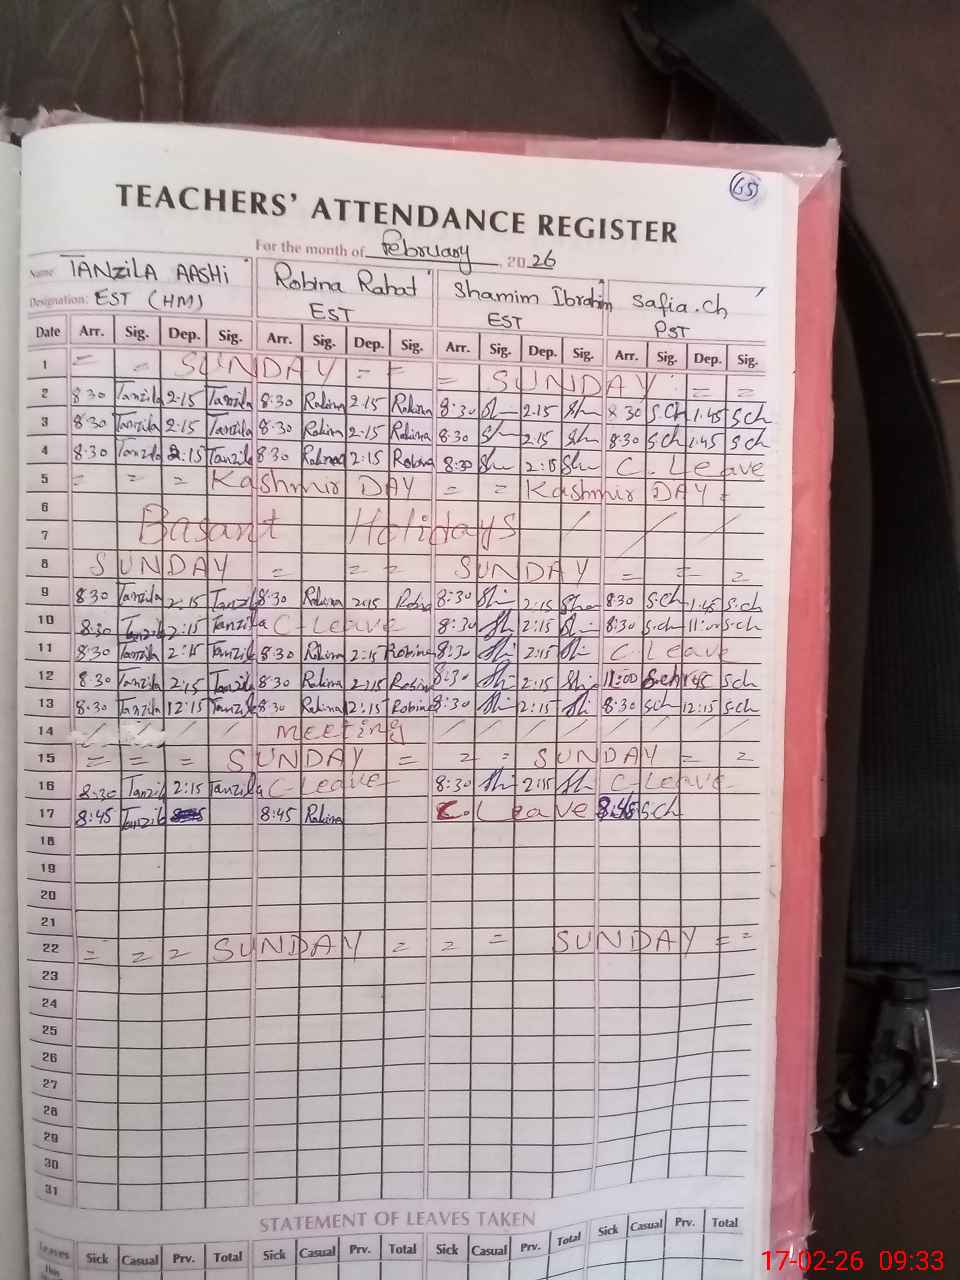 65
TEACHERS' ATTENDANCE REGISTER
For the month of February, 2026
Name: TANZILA AASHI Robina Rahat Shamim Ibrahim Safia.ch
Designation: EST (HM) EST EST PST
Date Arr. Sig. Dep. Sig. Arr. Sig. Dep. Sig. Arr. Sig. Dep. Sig. Arr. Sig. Dep. Sig.
1 = = SUNDAY = = = SUNDAY = =
2 8:30 Tanzila 2:15 Tanzila 8:30 Robina 2:15 Robina 8:30 2:15 8:30 S.ch 1:45 S.ch
3 8:30 Tanzila 2:15 Tanzila 8:30 Robina 2:15 Robina 8:30 2:15 8:30 S.ch 1:45 S.ch
4 8:30 Tanzila 2:15 Tanzila 8:30 Robina 2:15 Robina 8:30 2:15 C. Leave
5 = = = Kashmir DAY = = Kashmir DAY =
6
7 Basant Holidays
8 SUNDAY = = = SUNDAY = = =
9 8:30 Tanzila 2:15 Tanzila 8:30 Robina 2:15 Robina 8:30 2:15 8:30 S.ch 1:45 S.ch
10 8:30 Tanzila 2:15 Tanzila C-Leave 8:30 2:15 8:30 S.ch 11:00 S.ch
11 8:30 Tanzila 2:15 Tanzila 8:30 Robina 2:15 Robina 8:30 2:15 C. Leave
12 8:30 Tanzila 2:15 Tanzila 8:30 Robina 2:15 Robina 8:30 2:15 11:00 S.ch 1:45 S.ch
13 8:30 Tanzila 12:15 Tanzila 8:30 Robina 12:15 Robina 8:30 2:15 8:30 S.ch 12:15 S.ch
14 MEETING
15 = = = SUNDAY = = = SUNDAY = =
16 8:30 Tanzila 2:15 Tanzila C-Leave 8:30 2:15 C-Leave
17 8:45 Tanzila 8:45 Robina C. Leave 8:45 S.ch
18
19
20
21
22 = = = SUNDAY = = = SUNDAY = =
23
24
25
26
27
28
29
30
31
STATEMENT OF LEAVES TAKEN
Leaves Sick Casual Prv. Total Sick Casual Prv. Total Sick Casual Prv. Total Sick Casual Prv. Total
17-02-26 09:33